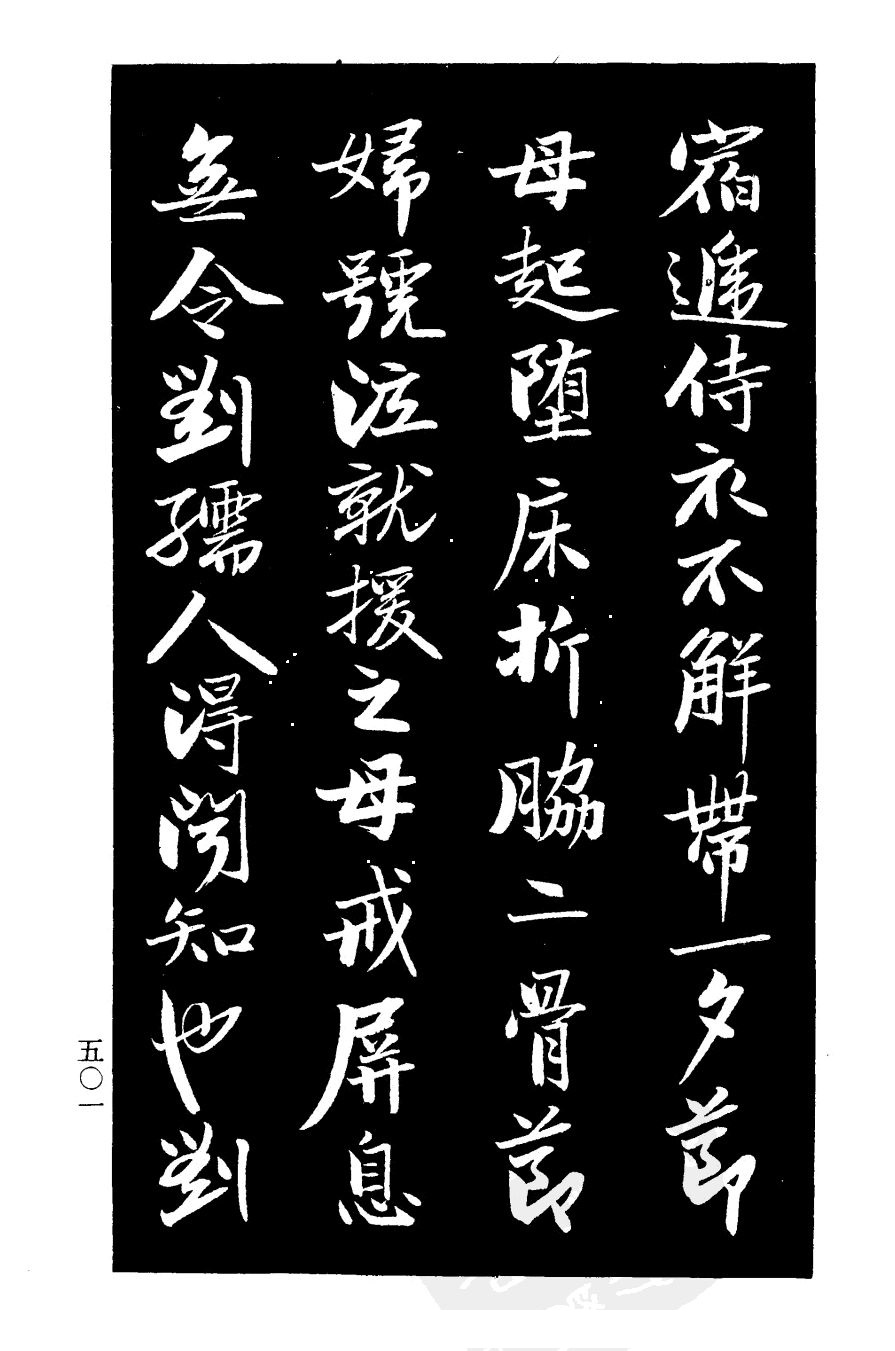 宿遞侍衣不解帶一夕節
母起墮床折脇二骨節
婦號泣就援之母戒屏息
無令劉孺人得聞知也劉
五〇一